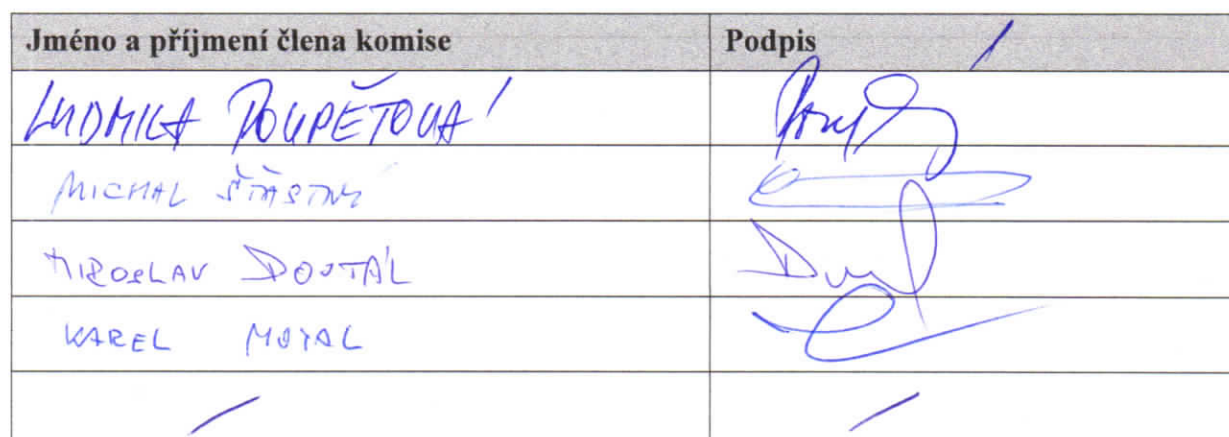 Jméno a příjmení člena komise Podpis
LUDMILA POUPĚTOVÁ
MICHAL ŠŤASTNÝ
MIROSLAV DOUTÁL
KAREL